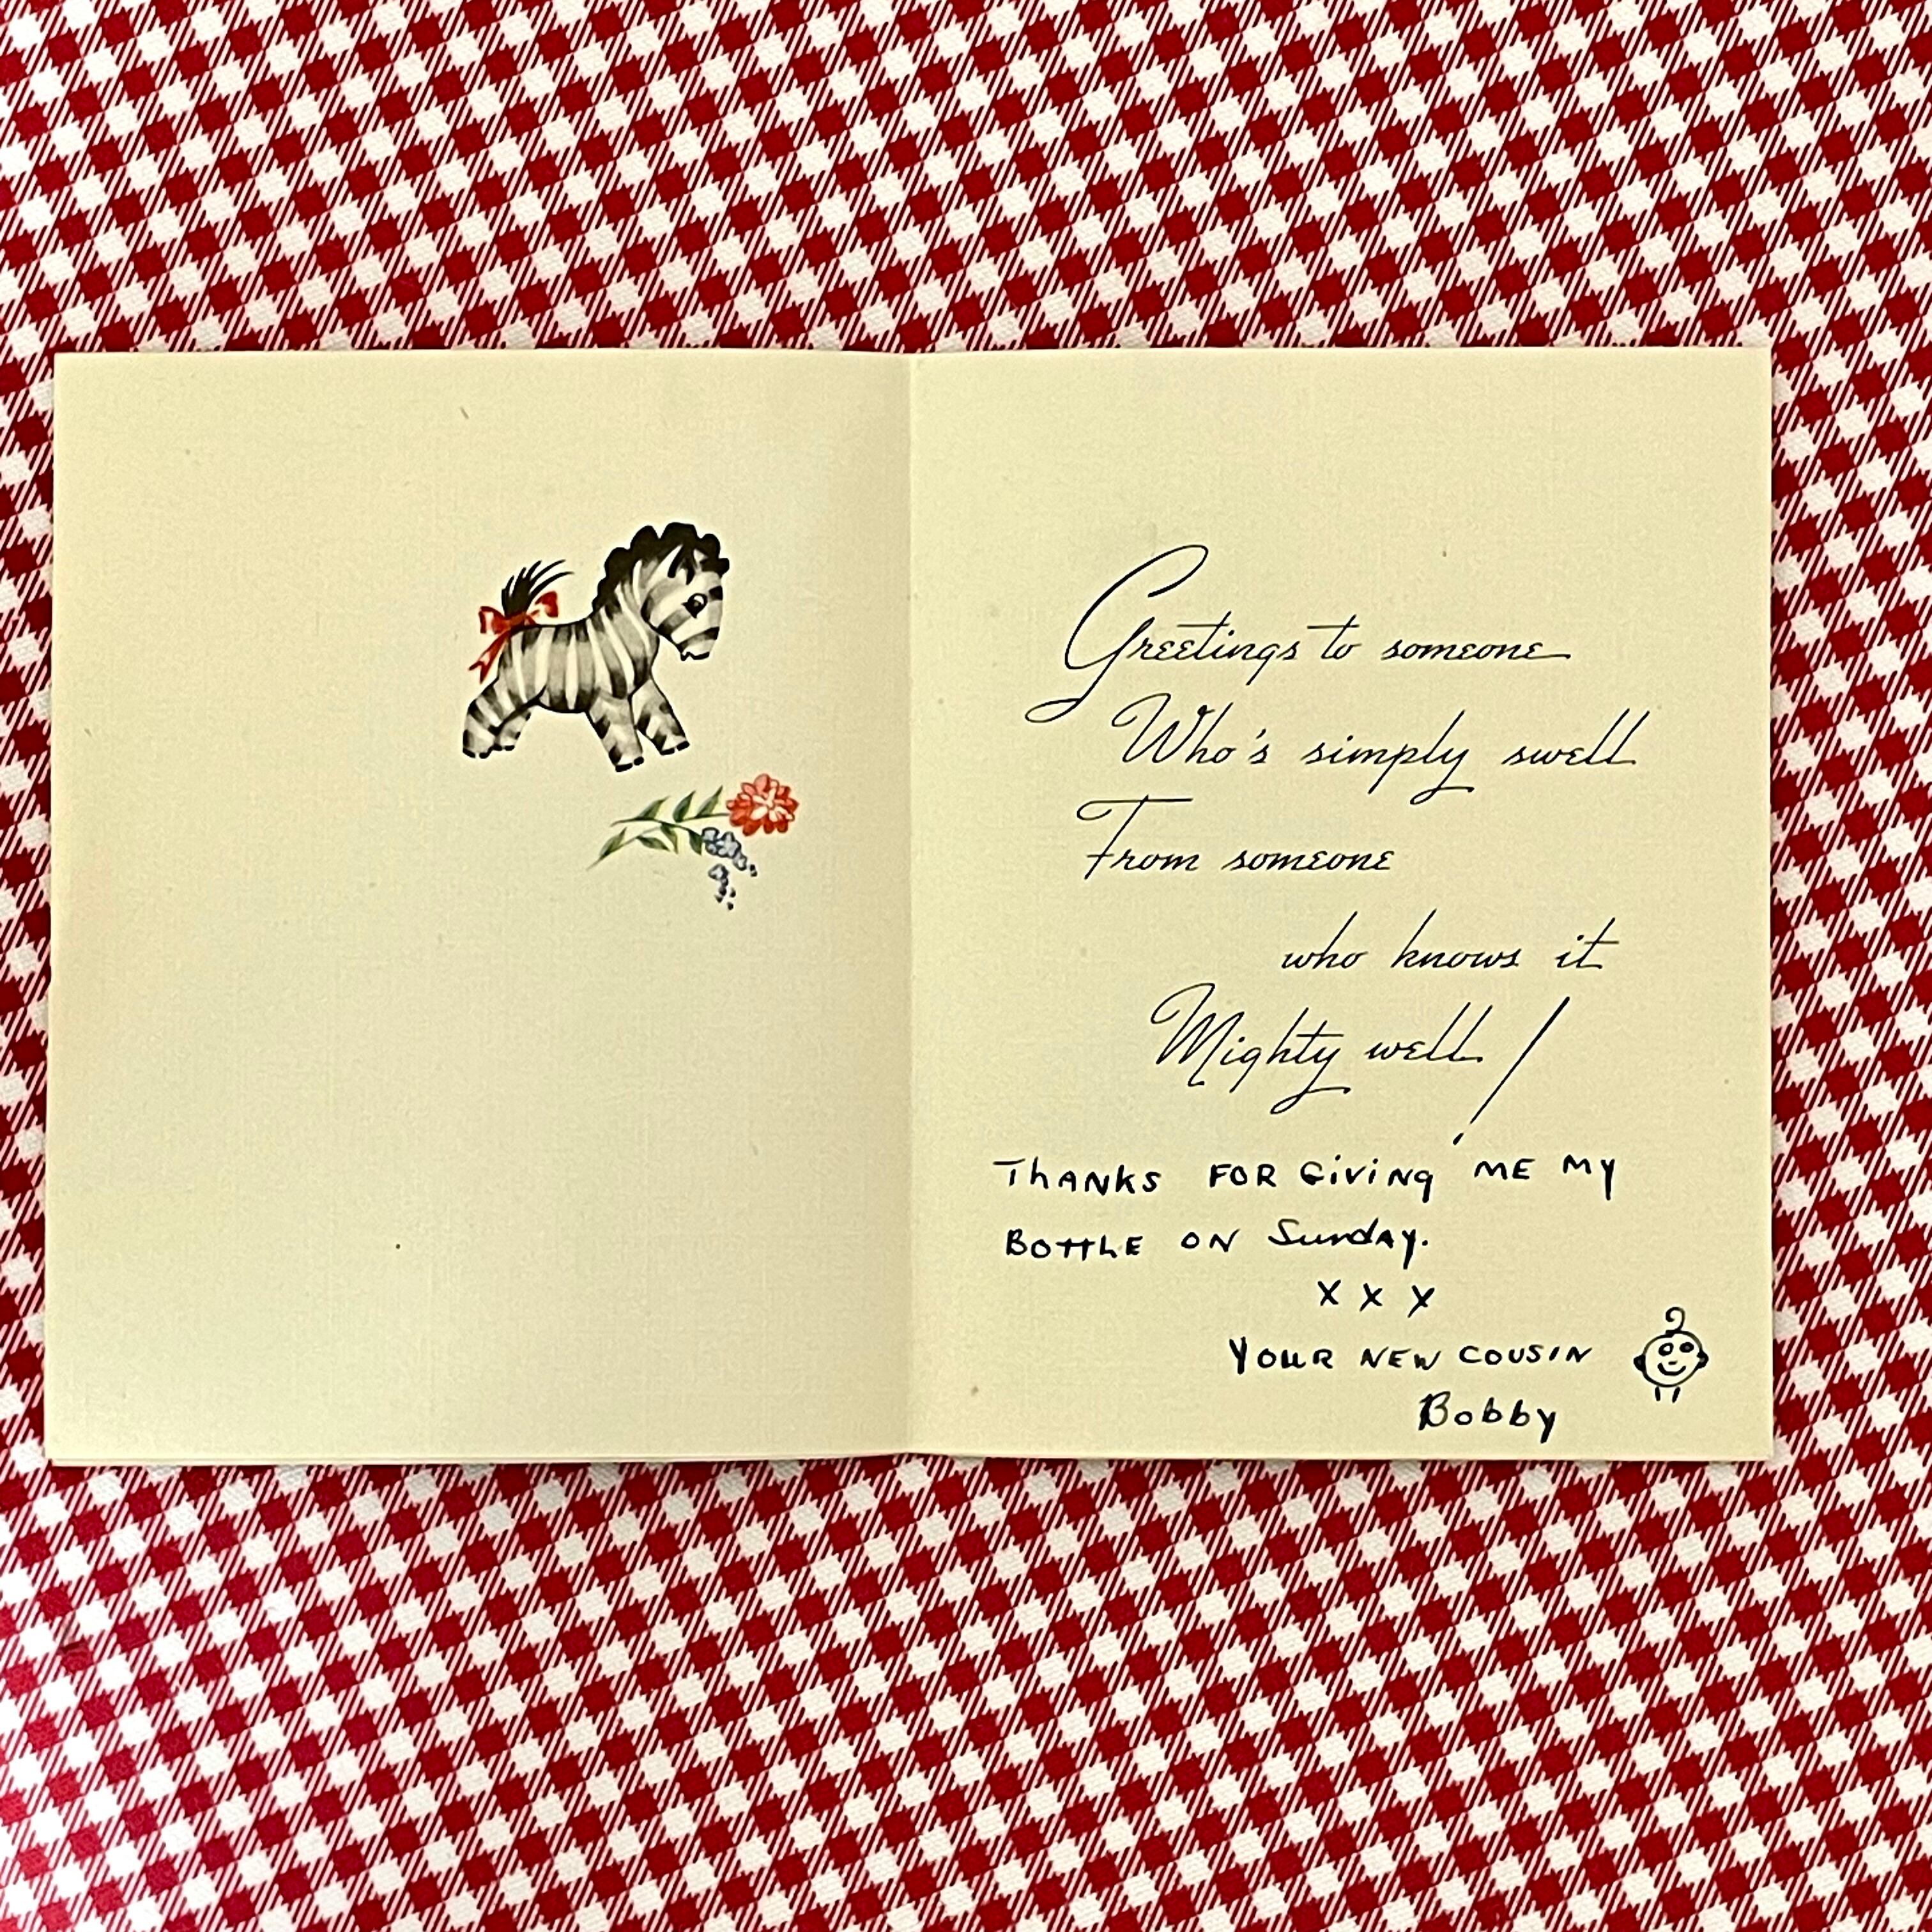 Greetings to someone
Who's simply swell
From someone
who knows it
Mighty well!
THANKS FOR GiViNg ME MY
BOTTLE ON SundAy.
X X X
YOUR NEW COUSIN
Bobby